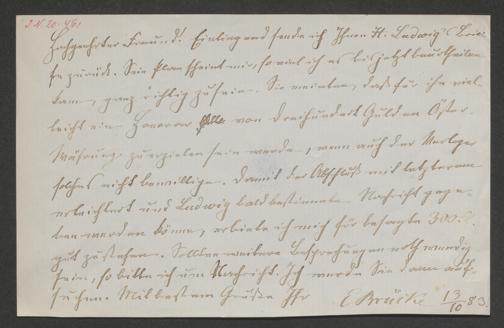 J.N. 20.461
Hochgeehrter Freund! Einliegend sende ich Ihnen H. Ludwig's Brie-
fe zurück. Sein Plan scheint mir, so viel ich es bis jetzt beurtheilen
kann, ganz richtig zu sein. Sie meinten, daß für ihn viel-
leicht ein Honorar von dreihundert Gulden Öster.
Währung zu erzielen sein werde, wenn auch der Verleger
solches nicht bewillige. Damit der Abschluß mit letzterem
erleichtert und Ludwig bald bestimmte Nachricht gege-
ben werden könne, erbiete ich mich für besagte 300 fl.
gut zu stehen. Sollten weitere Besprechungen nothwendig
sein, so bitte ich um Nachricht. Ich werde Sie dann auf-
suchen. Mit bestem Gruße Ihr E Brücke 13/10 83.